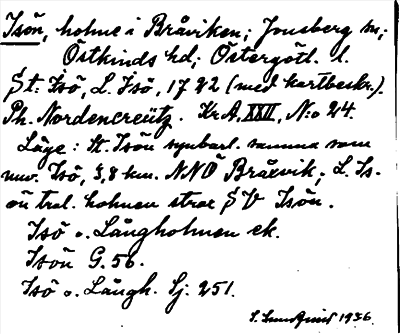 Isön, holme i Bråviken; Jonsberg sn;
Östkinds hd; Östergötl. l.
St: Isö, L. Isö, 1722 (med kartbeskr.).
Ph. Nordencreütz. KrA, XXII, N:o 24.
Läge: St. Isön synbarl. samma som
nuv. Isö, 3,8 km. NNÖ Bråxvik; L. Is-
ön trol. holmen strax SV Isön.
Isö o. Långholmen ek.
Isön G. 56.
Isö o. Långh. Sj. 251.
1936